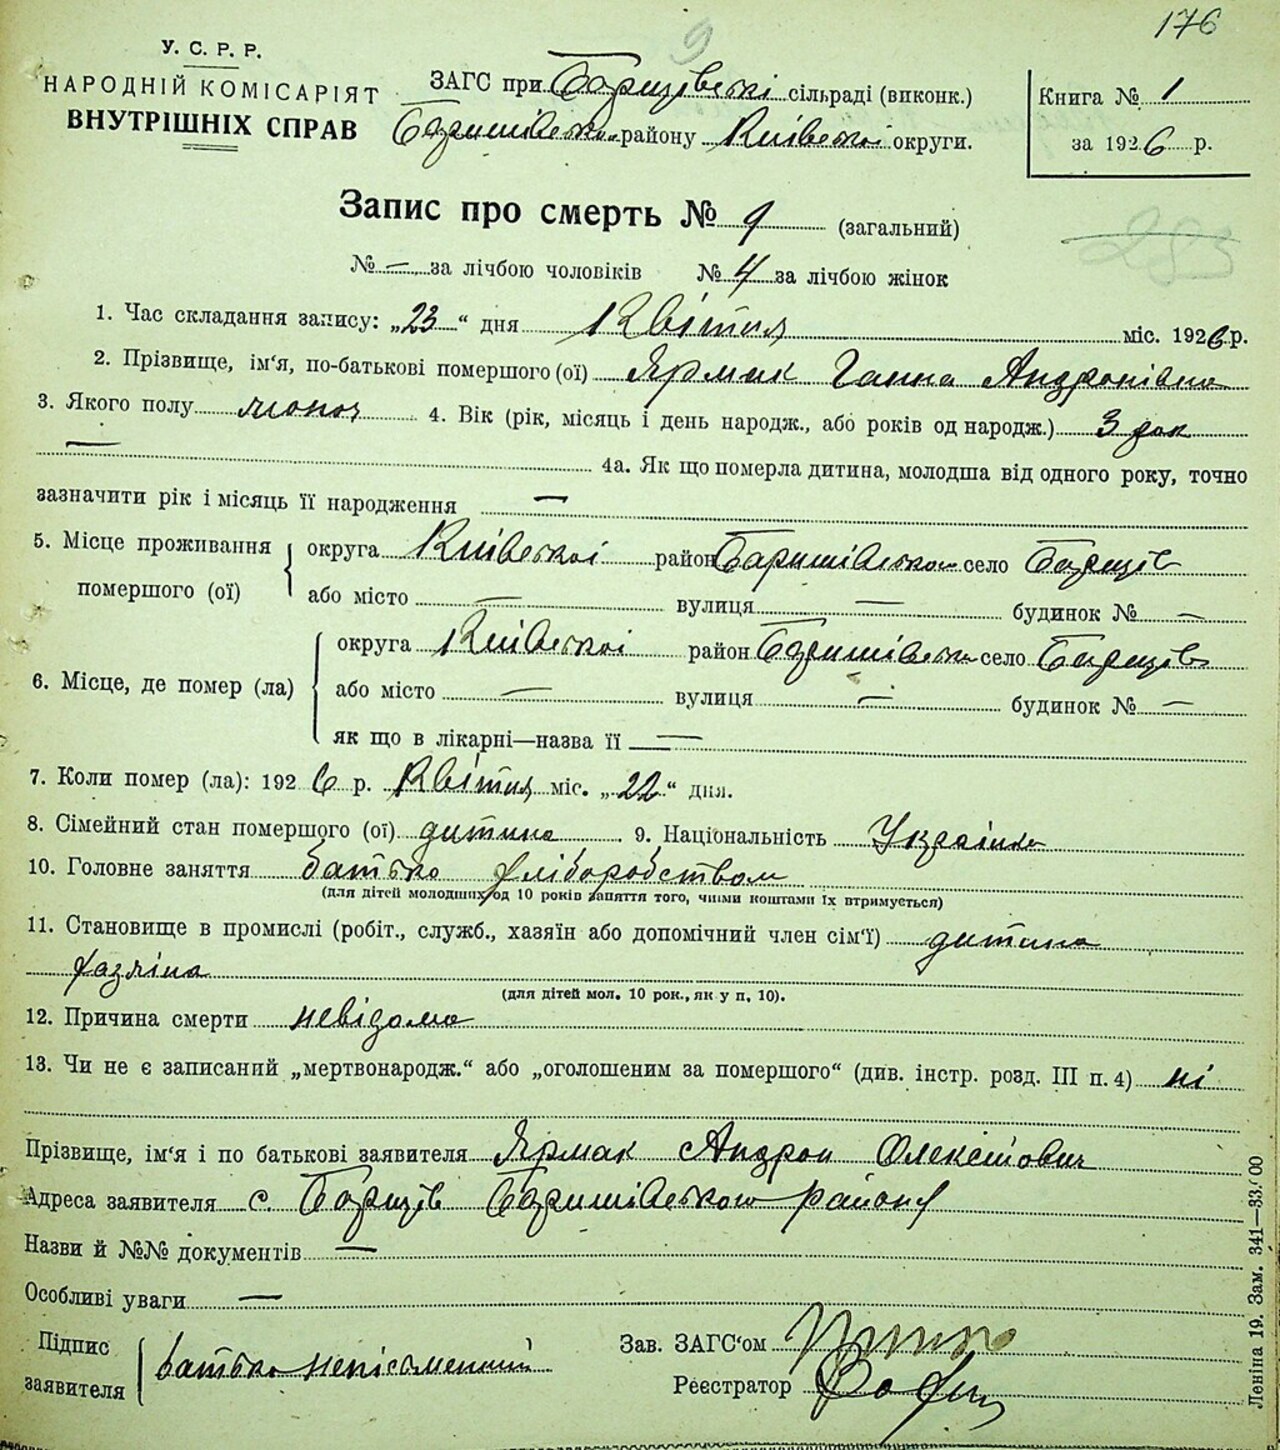 176
9
У. С. Р. Р.
НАРОДНІЙ КОМІСАРІЯТ
ВНУТРІШНІХ СПРАВ
ЗАГС при Борщівські сільраді (виконк.)
Баришівського району Київської округи.
Книга № 1
за 1926 р.
Запис про смерть № 9 (загальний)
283
№ — за лічбою чоловіків № 4 за лічбою жінок
1. Час складання запису: „23“ дня Квітня міс. 1926 р.
2. Прізвище, ім‘я, по-батькові помершого (ої) Ярмак Ганна Андронівна
3. Якого полу жіноч 4. Вік (рік, місяць і день народж., або років од народж.) 3 рок
— 4а. Як що померла дитина, молодша від одного року, точно
зазначити рік і місяць її народження —
5. Місце проживання помершого (ої)
округа Київської район Баришівськом село Борщів
або місто — вулиця — будинок № —
6. Місце, де помер (ла)
округа Київської район Баришівськ село Борщів
або місто — вулиця — будинок № —
як що в лікарні—назва її —
7. Коли помер (ла): 1926 р. Квітня міс. „22“ дня.
8. Сімейний стан помершого (ої) дитина 9. Національність Українка
10. Головне заняття батько хліборобством
(для дітей молодших од 10 років заняття того, чиїми коштами їх втримується)
11. Становище в промислі (робіт., служб., хазяїн або допомічний член сім‘ї) дитина
хазяїна
(для дітей мол. 10 рок., як у п. 10).
12. Причина смерти невідома
13. Чи не є записаний „мертвонародж.“ або „оголошеним за помершого“ (див. інстр. розд. III п. 4) ні
Прізвище, ім‘я і по батькові заявителя Ярмак Андрон Олексійович
Адреса заявителя с. Борщів Баришівського району
Назви й №№ документів —
Особливі уваги —
Підпис заявителя батько неписьменний
Зав. ЗАГС‘ом
Реєстратор
Леніна 19. Зам. 341—33.000